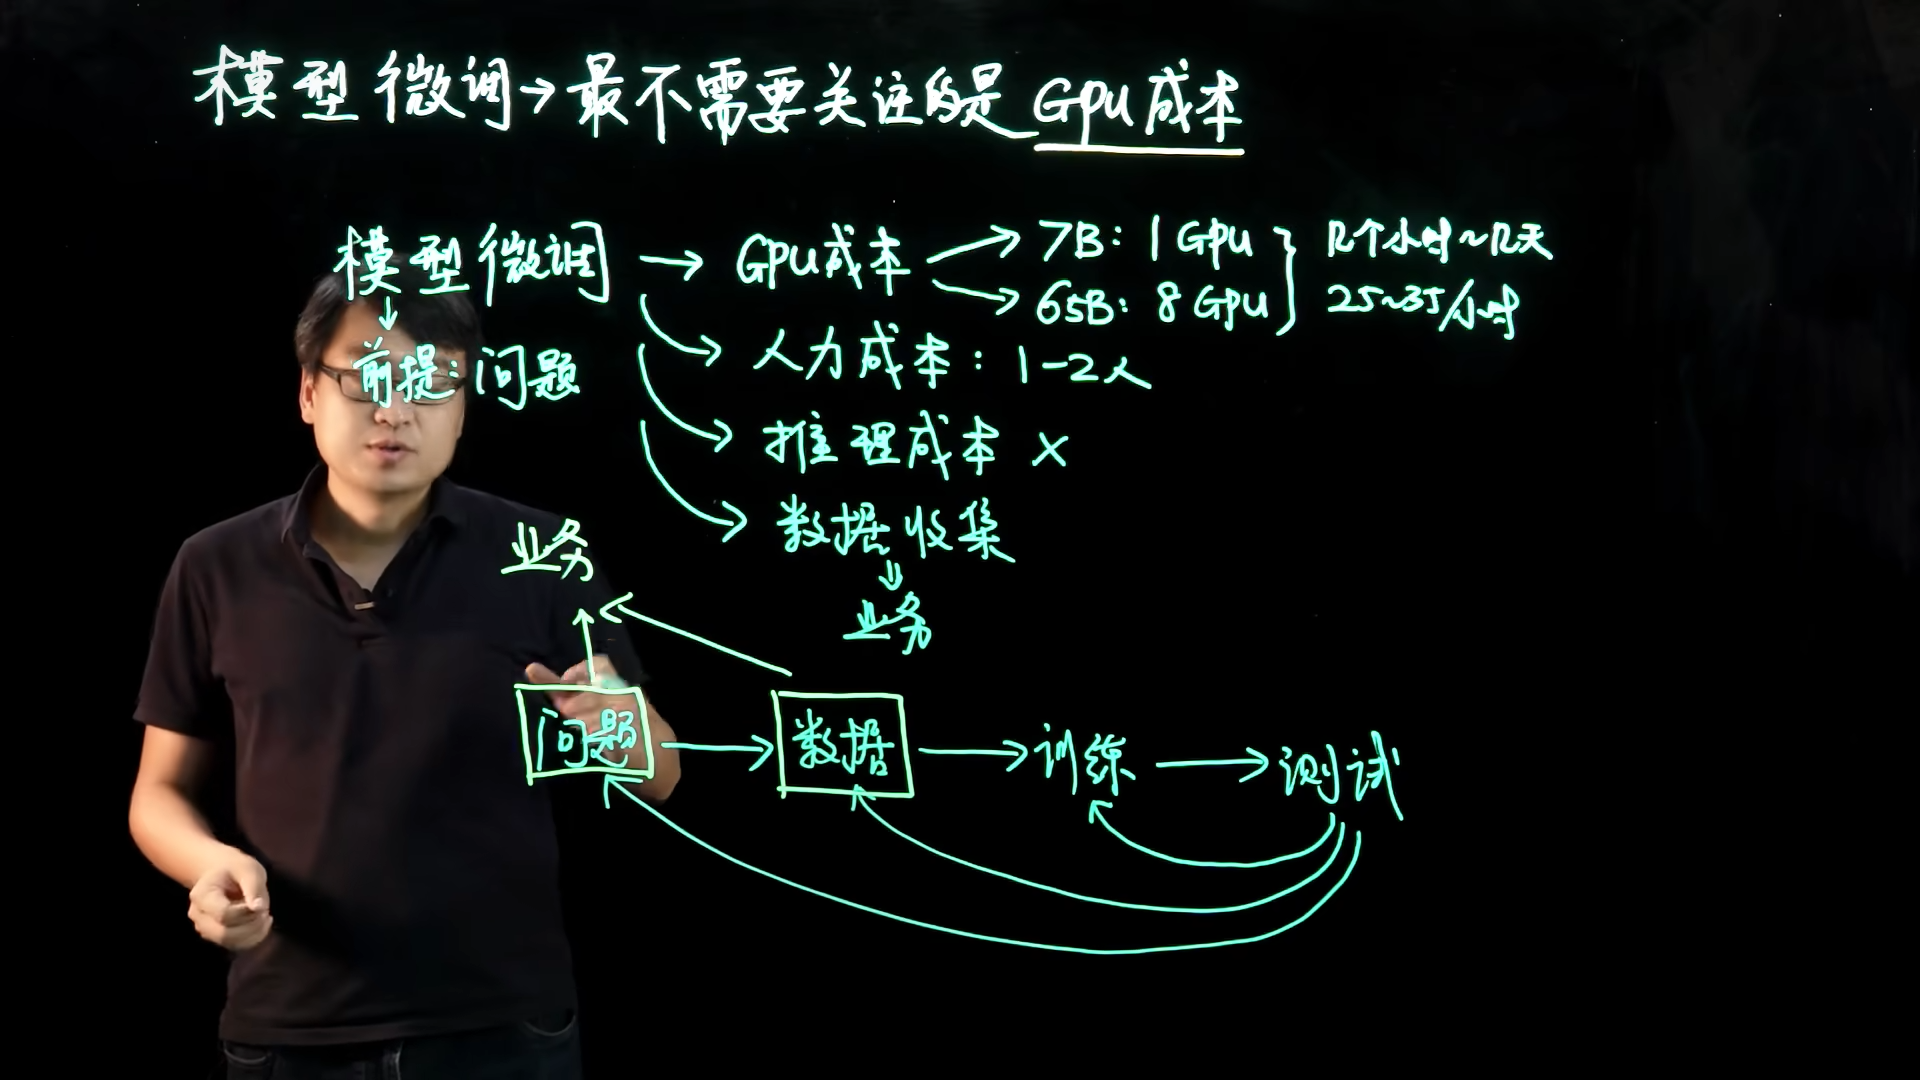 模型微调→最不需要关注的是Gpu成本
模型微调 → GPU成本 → 7B: 1 GPU } 几个小时~几天
→ 65B: 8 GPU } 25~35/小时
↓
前提: 问题
→ 人力成本: 1-2人
→ 推理成本 X
→ 数据收集
↓
业务
业务
问题 → 数据 → 训练 → 测试